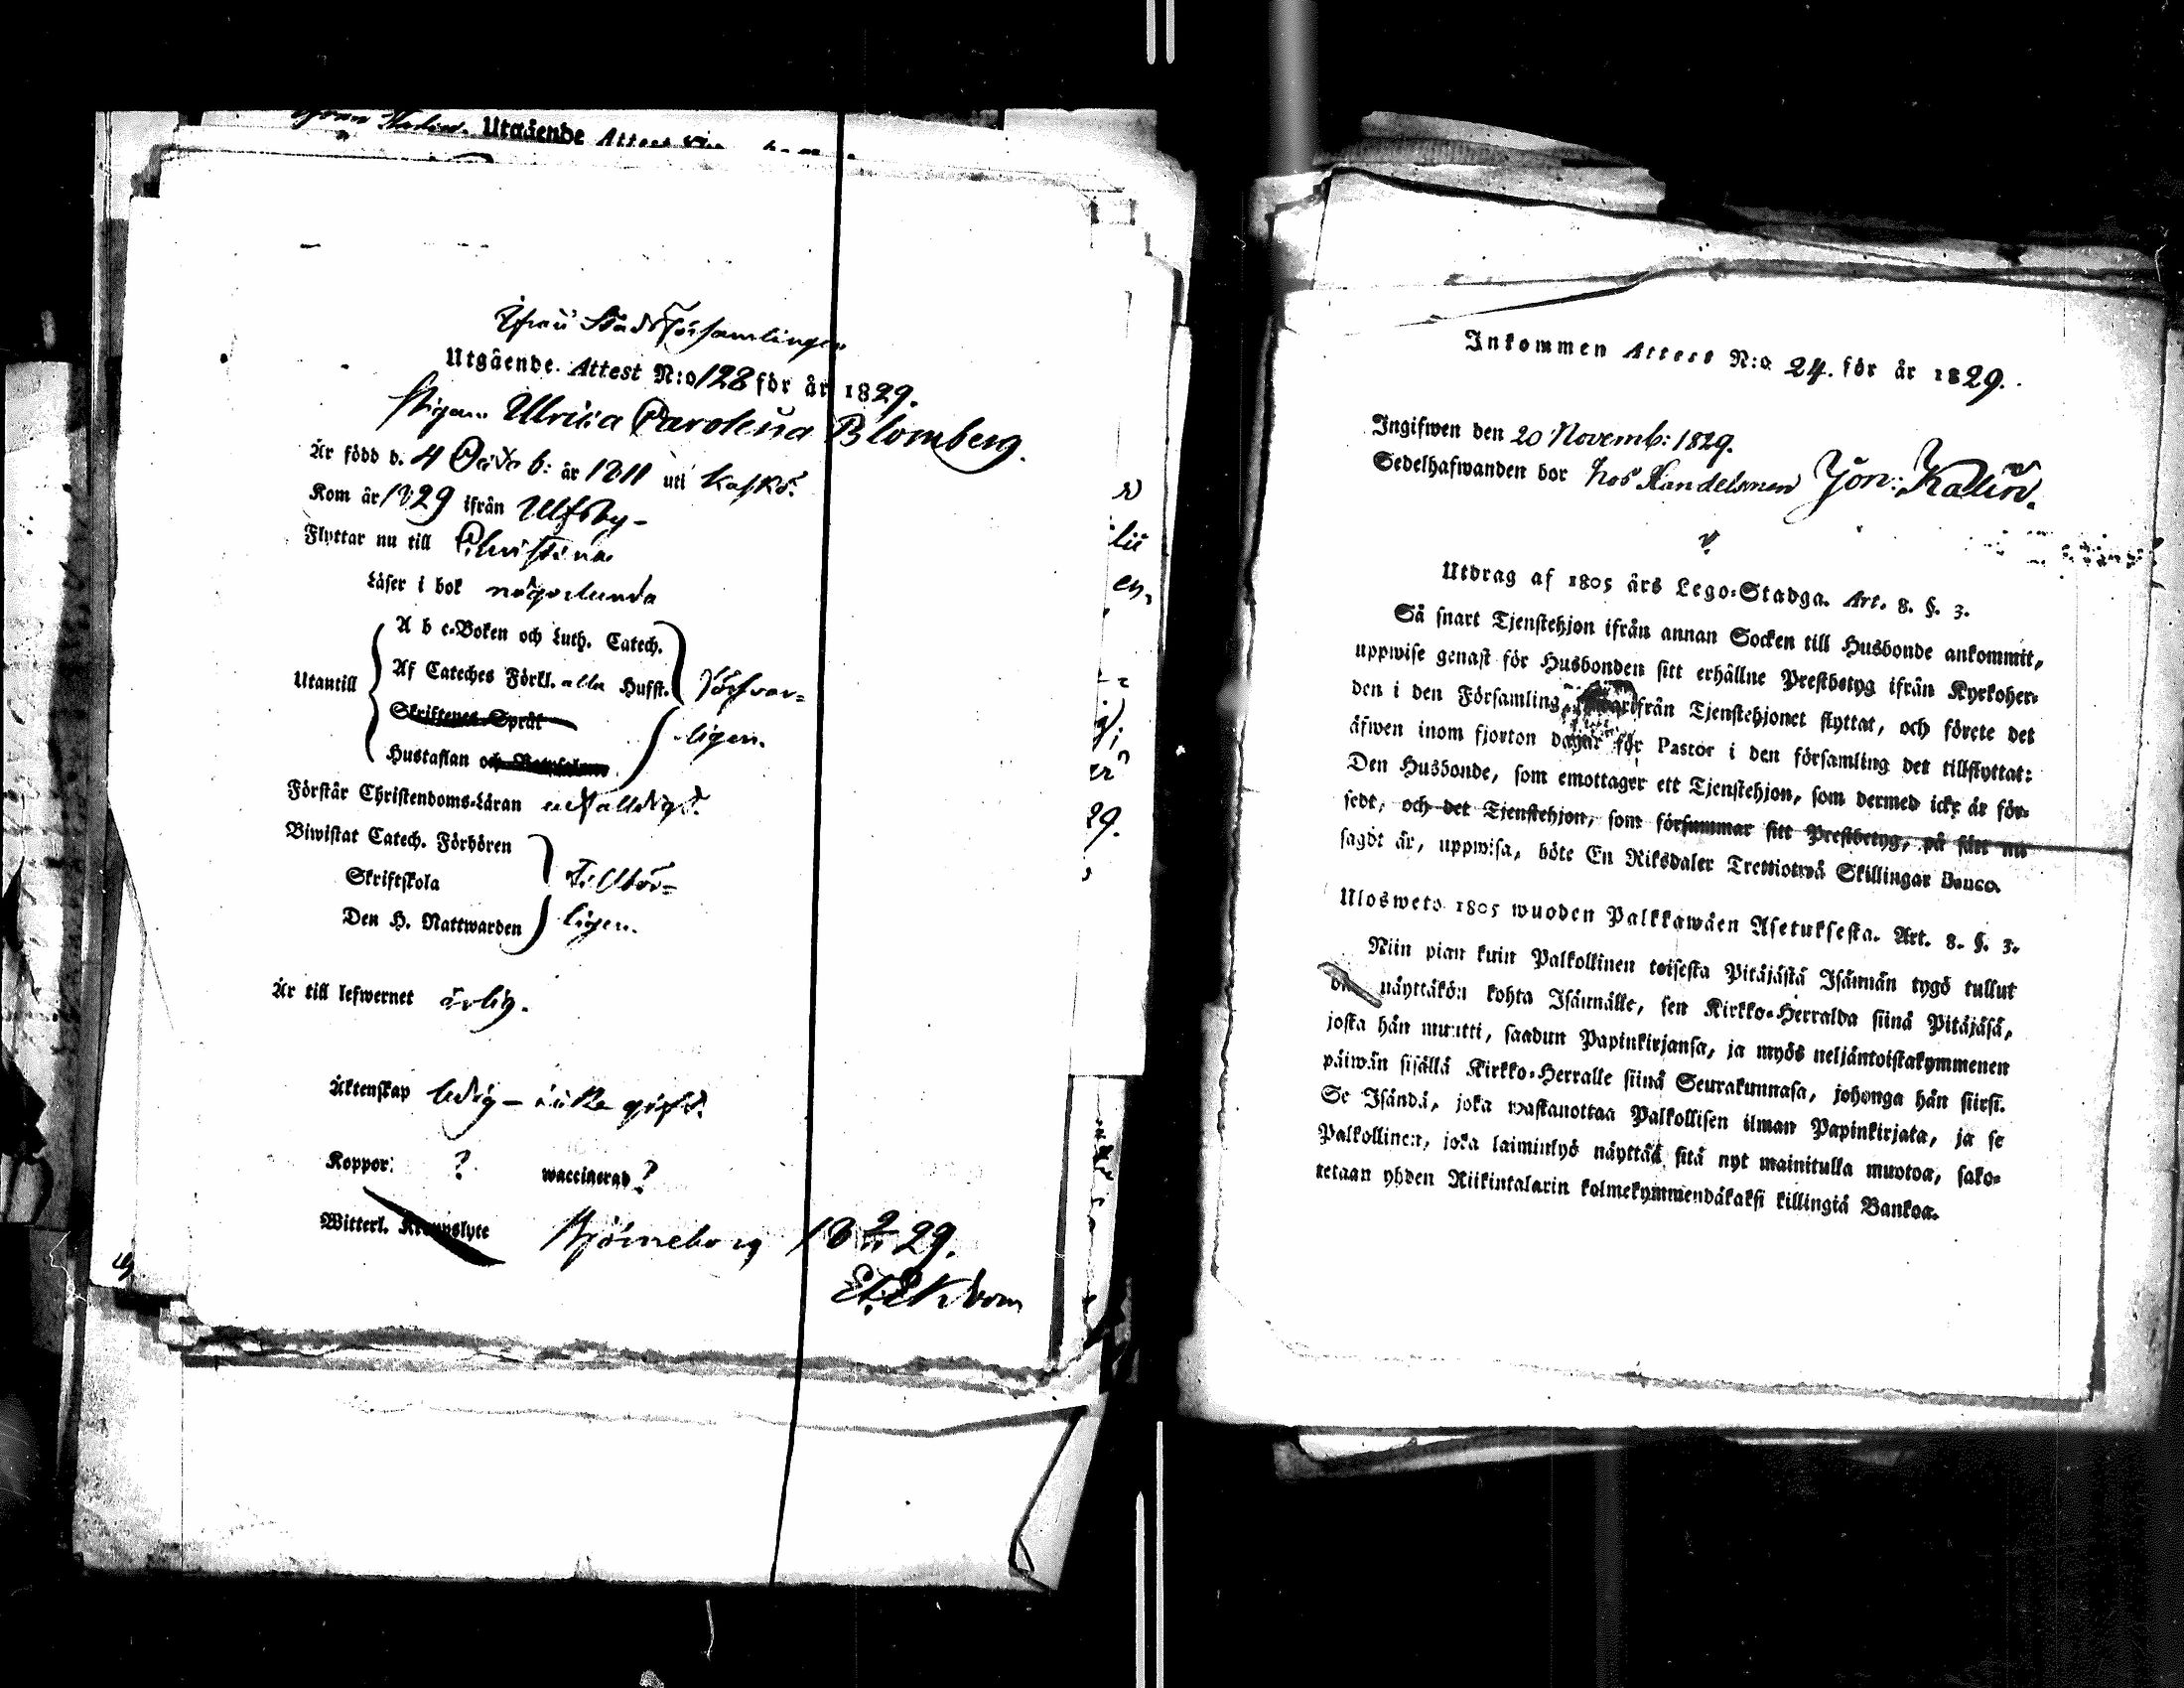 Utgående Attest
Ifrån Stads Församlingen
Utgående Attest N:o 128 för år 1829.
Pigan Ulrica Carolina Blomberg.
Är född d. 4 Octob: år 1811 uti Kaskö.
Kom år 1829 ifrån Ulfsby -
Flyttar nu till Christina
Läser i bok någorlunda
A b c-Boken och Luth. Catech.
Af Cateches Förkl. alla Hufst.
Utantill
försvar=
Skriftenes Språk
ligen.
Hustaflan och
Förstår Christendoms-Läran enfalldigt.
Biwistat Catech. Förhören
Skriftskola
Tillbör=
Den H. Nattwarden
ligen.
Är till lefwernet ärlig.
Äktenskap ledig - icke gift.
Koppor: ? waccinerad ?
Witterl. Kroppslyte
Björneborg 18 29.
Inkommen Attest N:o 24. för år 1829.
Ingifwen den 20 Novemb: 1829.
Sedelhafwanden bor hos Handelsman Jon: Kalin.
Utdrag af 1805 års Lego-Stadga. Art. 8. §. 3.
Så snart Tjenstehjon ifrån annan Socken till Husbonde ankommit,
uppwise genast för Husbonden sitt erhållne Prestbetyg ifrån Kyrkoher-
den i den Församling, frän Tjenstehjonet flyttat, och förete det
äfwen inom fjorton dagar för Pastor i den församling det tillflyttat:
Den Husbonde, som emottager ett Tjenstehjon, som dermed icke är för-
sedt, och det Tjenstehjon, som försummar sitt Prestbetyg, på sätt nu
sagdt är, uppwisa, böte En Riksdaler Trettiotwå Skillingar Banco.
Ulosweto 1805 wuoden Palkkawäen Asetuksesta. Art. 8. §. 3.
Niin pian kuin Palkollinen toisesta Pitäjästä Isännän tygö tullut
on näyttäkön kohta Isännälle, sen Kirkko-Herralda siinä Pitäjäsä,
josta hän muutti, saadun Papinkirjansa, ja myös neljäntoistakymmenen
päiwän sisällä Kirkko-Herralle siinä Seurakunnasa, johonga hän siirsi.
Se Isändä, joka wastanottaa Palkollisen ilman Papinkirjata, ja se
Palkollinen, joka laiminlyö näyttää sitä nyt mainitulla muotoa, sako-
tetaan yhden Riikintalarin kolmekymmendäkaksi killingiä Bankoa.